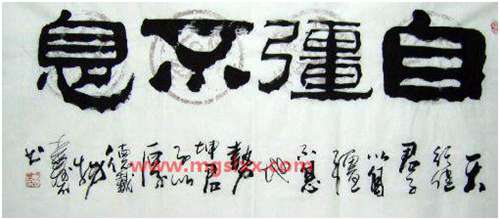 自彊不息
天
行健
君子
以自
彊
不息
地
勢
坤君
子以
厚
德載
物